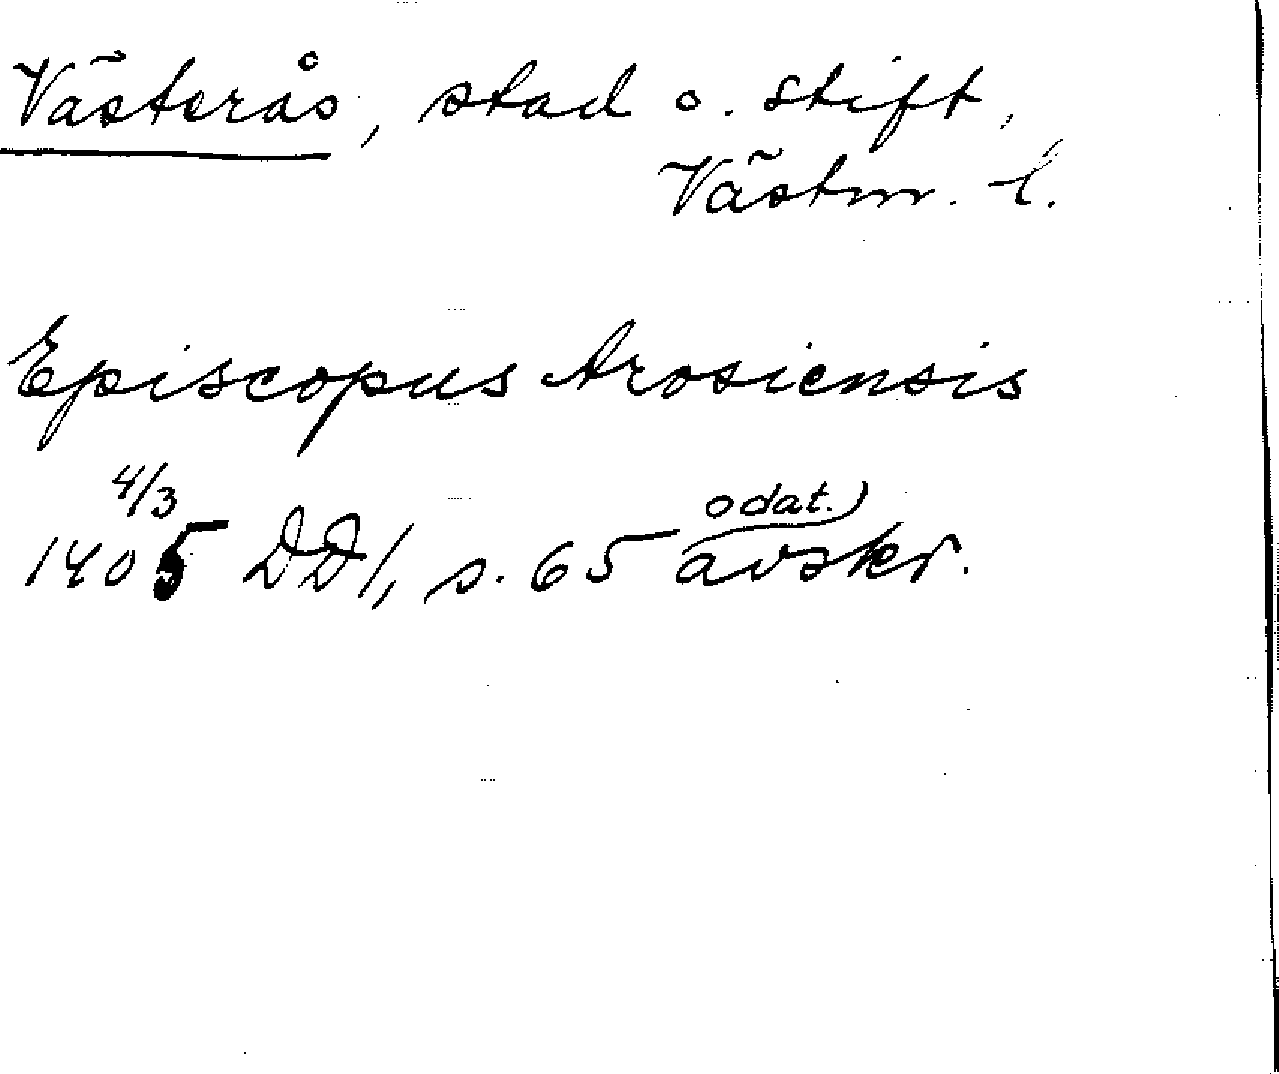 Västerås, stad o. stift,
Västm. l.
Episcopus Arosiensis
4/3
1405 DD1, s. 65 odat. avskr.